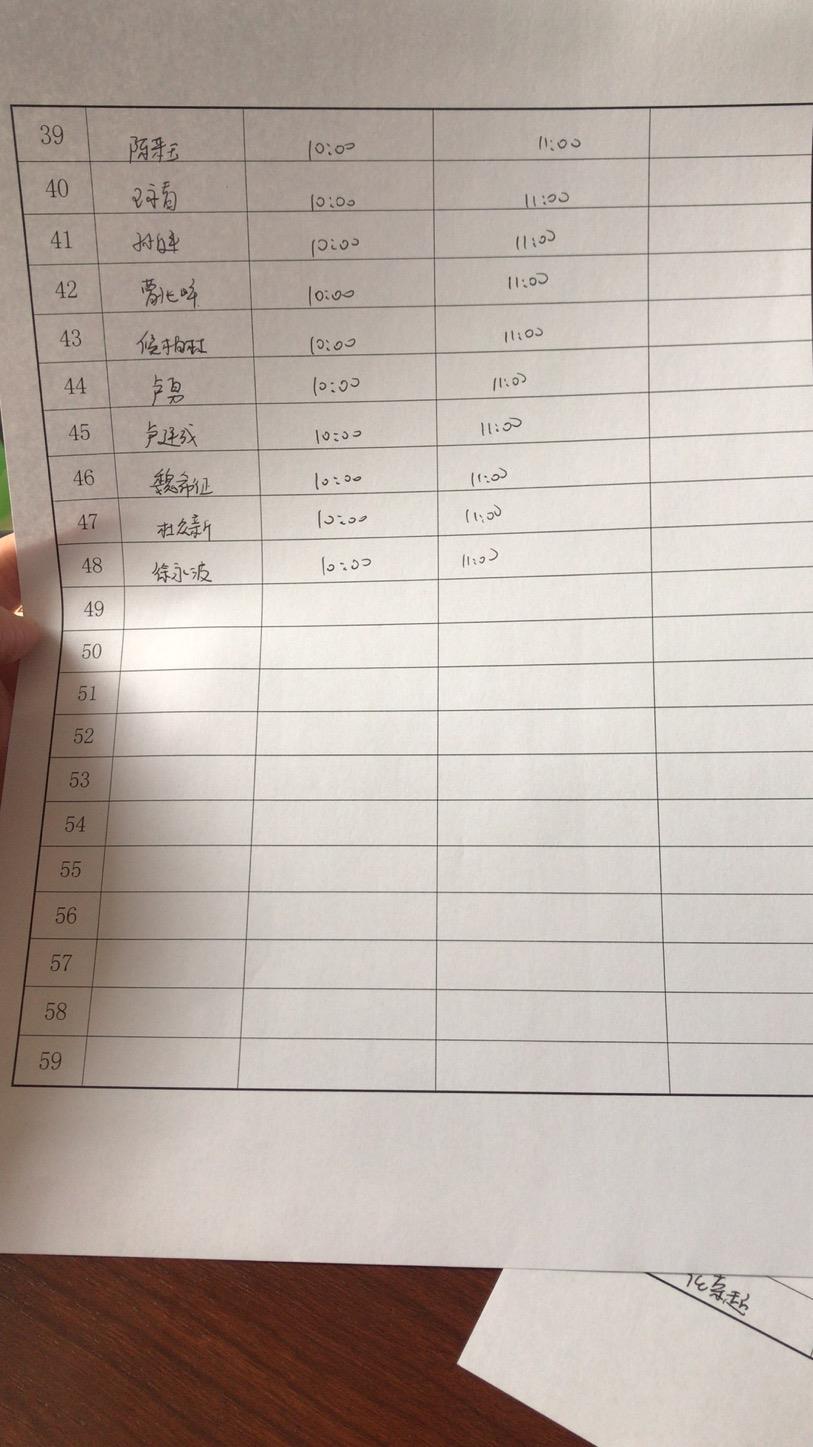 39 陈来玉 10:00 11:00
40 王守着 10:00 11:00
41 10:00 11:00
42 10:00 11:00
43 侯柏林 10:00 11:00
44 卢勇 10:00 11:00
45 卢连成 10:00 11:00
46 魏希征 10:00 11:00
47 杜众新 10:00 11:00
48 徐永波 10:00 11:00
49
50
51
52
53
54
55
56
57
58
59